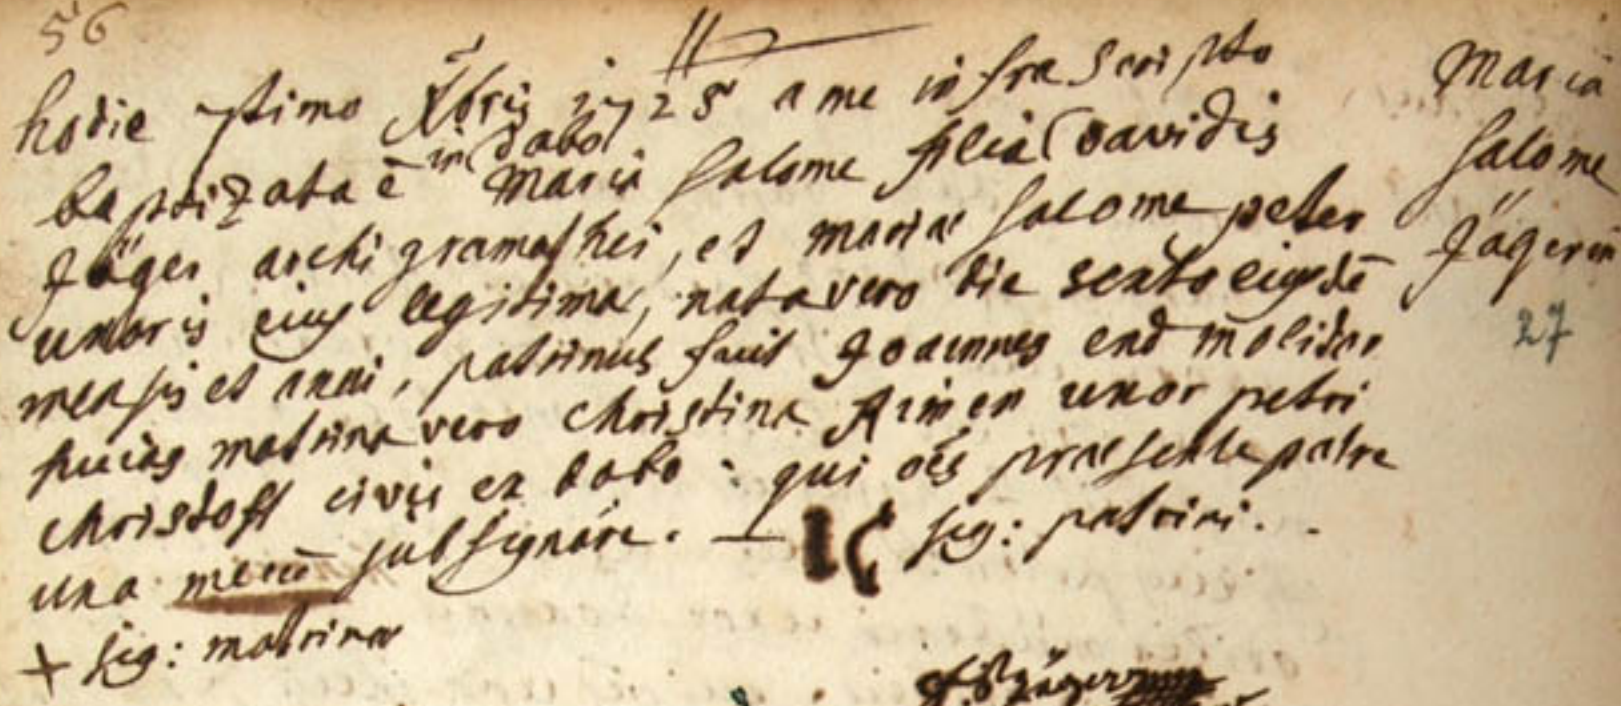 56
hodie septimo Xbris 1725 a me infra scripto
baptizata ē in dabo Maria Salome filia Davidis
Jäger archigramathei, et mariae Salome peter
uxoris eius legitimae, nata vero die sexto eiusdē
mensis et anni, patrinus fuit Joannes molidor
huias matrina vero Christina uxor petri
Christoff civis ex dabo : qui oēs praesente patre
una mecū subsignāre. sig: patrini.
+ sig: matrinae
Maria
Salome
Jägerin
27